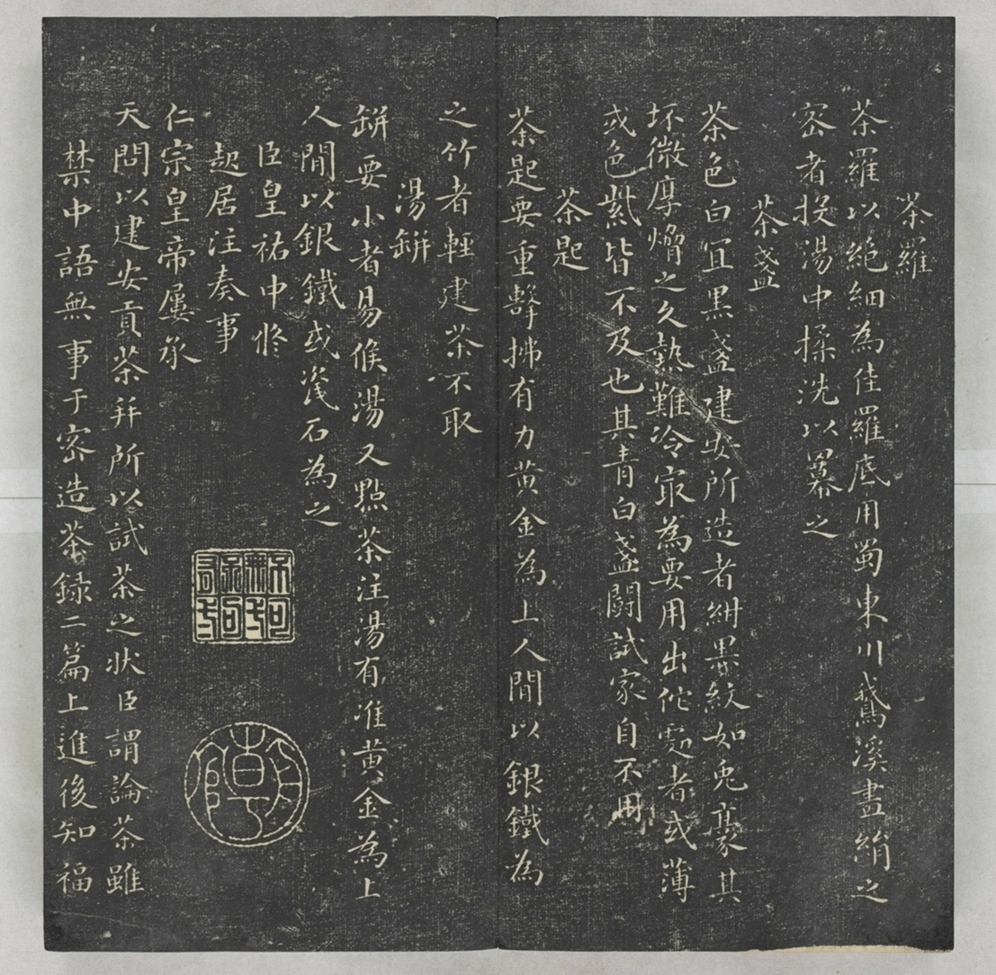 茶羅
茶羅以絶細為佳羅底用蜀東川鵞溪畫絹之
密者投湯中揉洗以羃之
茶盞
茶色白冝黒盞建安所造者紺黒紋如兎毫其
坯微厚熁之久熱難冷㝡為要用出他處者或薄
或色紫皆不及也其青白盞鬭試家自不用
茶匙
茶匙要重擊拂有力黄金為上人間以銀鐵為
之竹者輕建茶不取
湯缾
缾要小者易候湯又點茶注湯有准黄金為上
人間以銀鐵或瓷石為之
臣皇祐中脩
起居注奏事
仁宗皇帝屢承
天問以建安貢茶并所以試茶之状臣謂論茶雖
禁中語無事于密造茶録二篇上進後知福